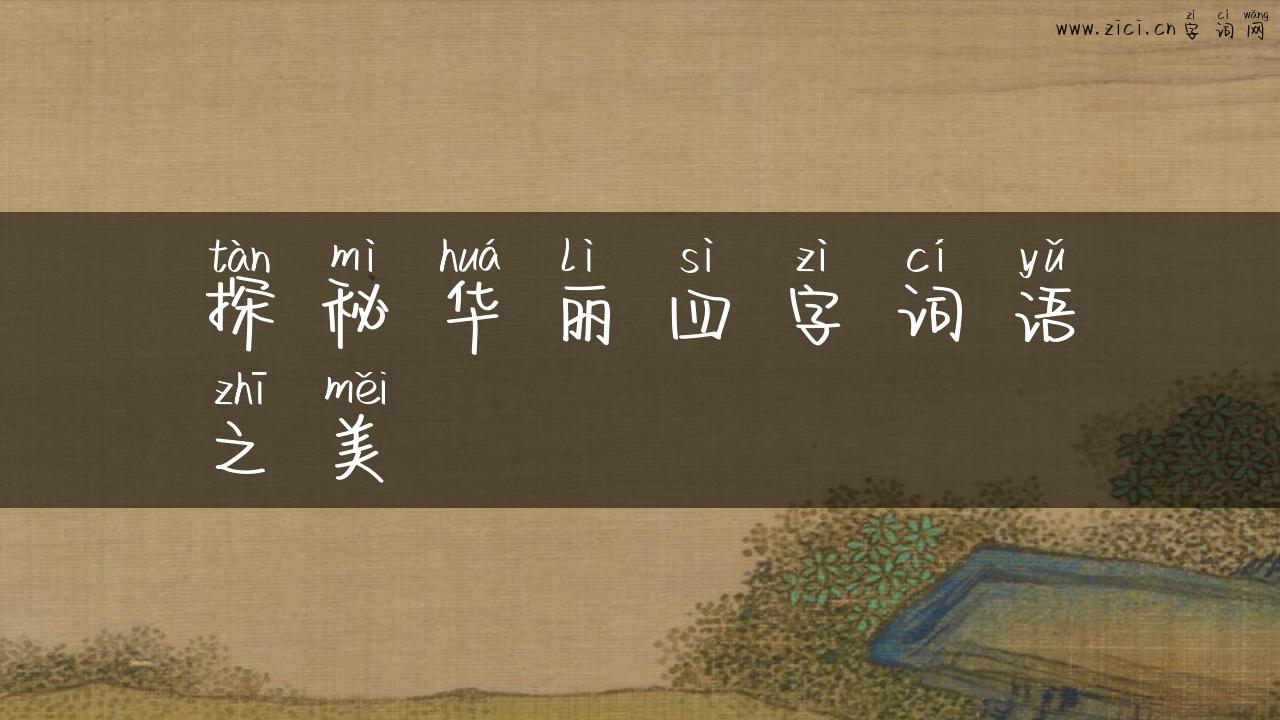 zì cí wǎng
www.zici.cn 字词网
tàn mì huá lì sì zì cí yǔ
探秘华丽四字词语
zhī měi
之美